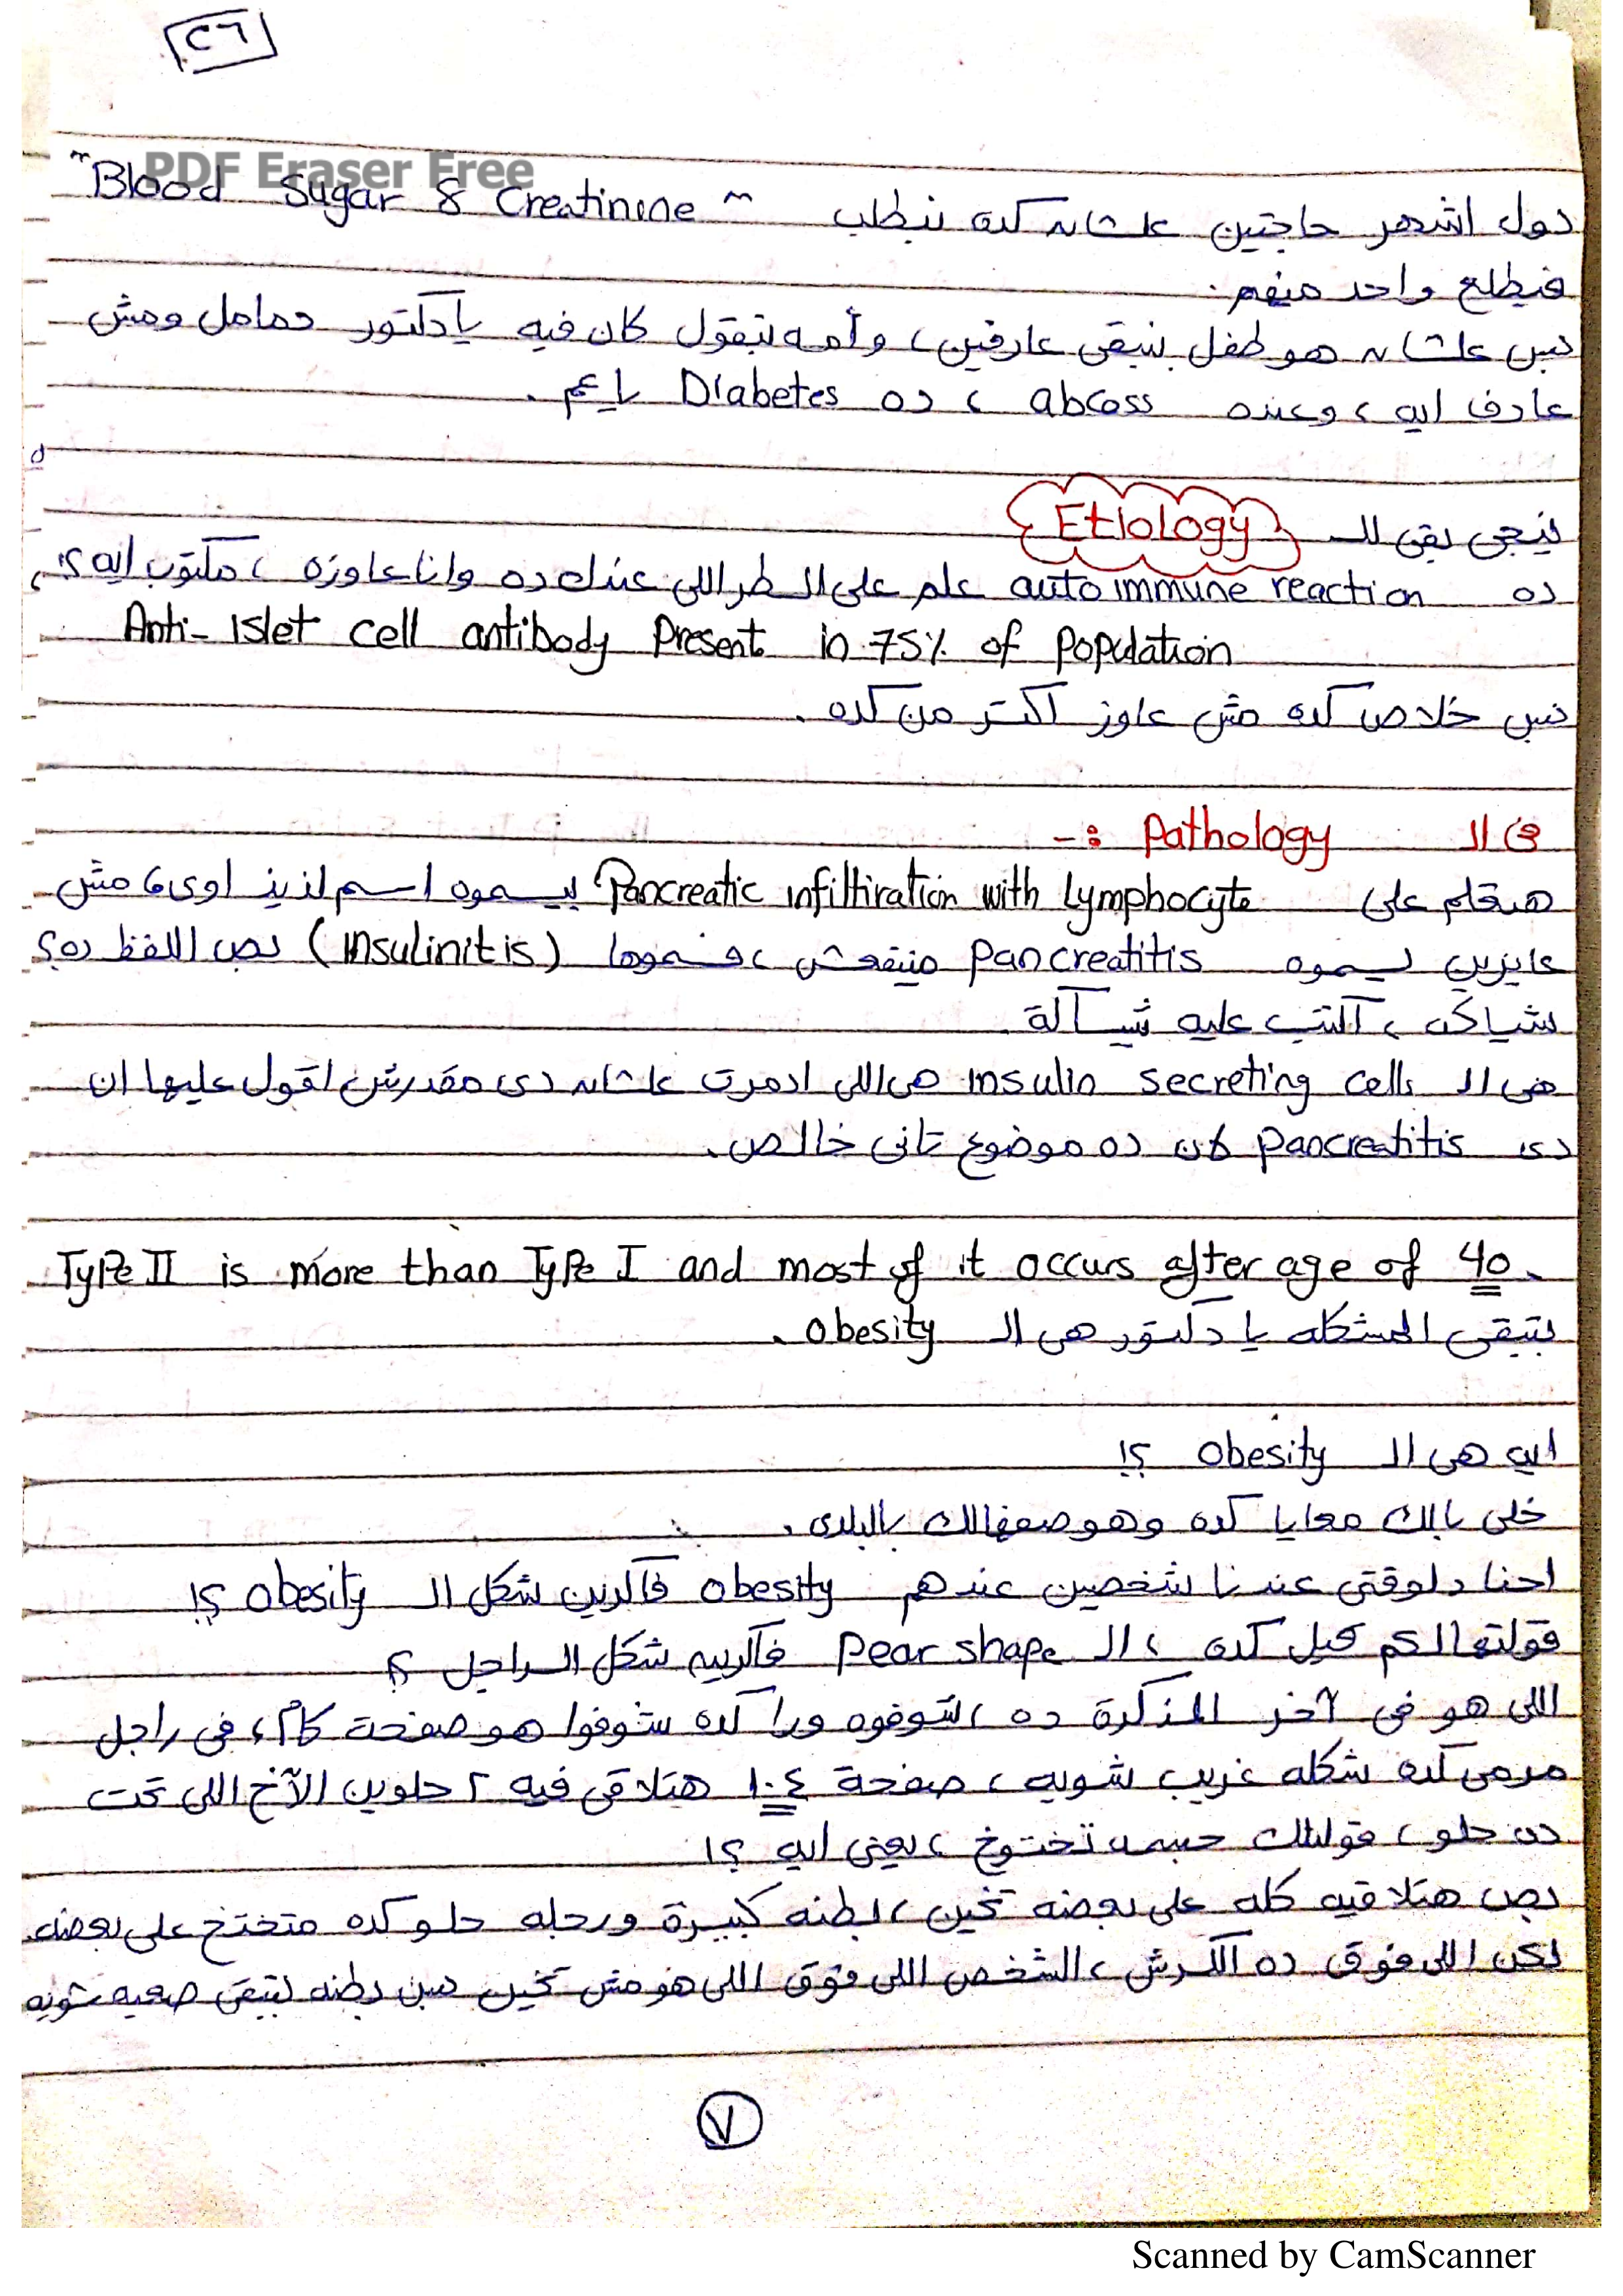 ٢٦
PDF Eraser Free
دول اشهر حاجتين علشان كده بنطلب "Blood Sugar & Creatinine"
فيطلع واحد منهم.
بس علشان هو طفل بنبقى عارفين، وأمه بتقول كان فيه يا دكتور حمامل ومش
عارف ايه، وعنده abcoss، ده Diabetes يا عم.
نيجى بقى للـ Etiology
ده autoimmune reaction علم على السطر اللى عندك ده وانا عاوزه، مكتوب ايه؟!
Anti-Islet cell antibody Present in 75% of Population
بس خلاص كده مش عاوز اكتر من كده.
فى الـ Pathology :-
هنتكلم على Pancreatic infiltiration with Lymphocyte بيسموه اسم لذيذ اوى، مش
عايزين يسموه pancreatitis مينفعش، فسموها (Insulinitis) بص اللفظ ده؟
شياكه، اكتب عليه شياكة.
هى الـ insulin secreting cells هى اللى ادمرت علشان دى مقدرش اقول عليها ان
دى pancreatitis لان ده موضوع تانى خالص.
Type II is more than Type I and most of it occurs after age of 40.
بتبقى المشكله يا دكتور هى الـ obesity.
ايه هى الـ obesity ؟!
خلى بالك معايا كده وهوصفهالك بالبلدى.
احنا دلوقتى عندنا شخصين عندهم obesity فاكرين شكل الـ obesity ؟!
قولتهالكم قبل كده، الـ pear shape فاكرين شكل الراجل ؟
اللى هو فى آخر المذكرة ده، شوفوه ورا كده شوفوا هو صفحة كام، فى راجل
مرمى كده شكله غريب شويه، صفحة ١٠٤ هتلاقى فيه ٢ حلوين الآخ اللى تحت
ده حلو، قولتلك جسمه تختوخ، يعنى ايه ؟!
بص هتلاقيه كله على بعضه تخين، بطنه كبيرة ورجله حلو كده متختخ على بعضه.
لكن اللى فوق ده الكرش، الشخص اللى فوق اللى هو مش تخين بس بطنه بتبقى صعبه شويه
٧
Scanned by CamScanner